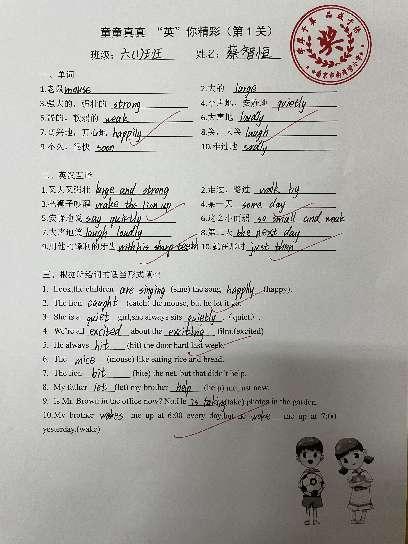 童童真真 “英”你精彩（第1关）
班级：六(1)班 姓名：蔡智恒
一、单词
1.老鼠 mouse 2.大的 large
3.强大的，强壮的 strong 4. quietly
weak 6.大声地 loudly
happily 8.笑，大笑 laugh
soon 10. sadly
二、英汉互译
1.又大又强壮 large and strong 2.走过，路过 walk by
wake the lion up 4.某一天 some day
say quietly so small and weak
laugh loudly 8.第二天 the next day
with his sharp teeth 10. just then
1. Look,the children are singing (sing) the song happily (happy).
2. The lion caught (catch) the mouse, but he let it go.
3. She is a quiet girl,she always sits quietly (quiet).
4. We're all excited about the exciting film.(excited)
5. He always hit (hit) the door hard last week.
6. The mice (mouse) like eating rice and bread.
7. The lion bit (bite) the net, but that didn't help.
8. My father let (let) my brother help me just now.
9. Is Mr. Brown in the office now? No.He is taking(take) photos in the garden.
10.My brother wakes me up at 6:00 every day,but he woke me up at 7:00
yesterday.(wake)